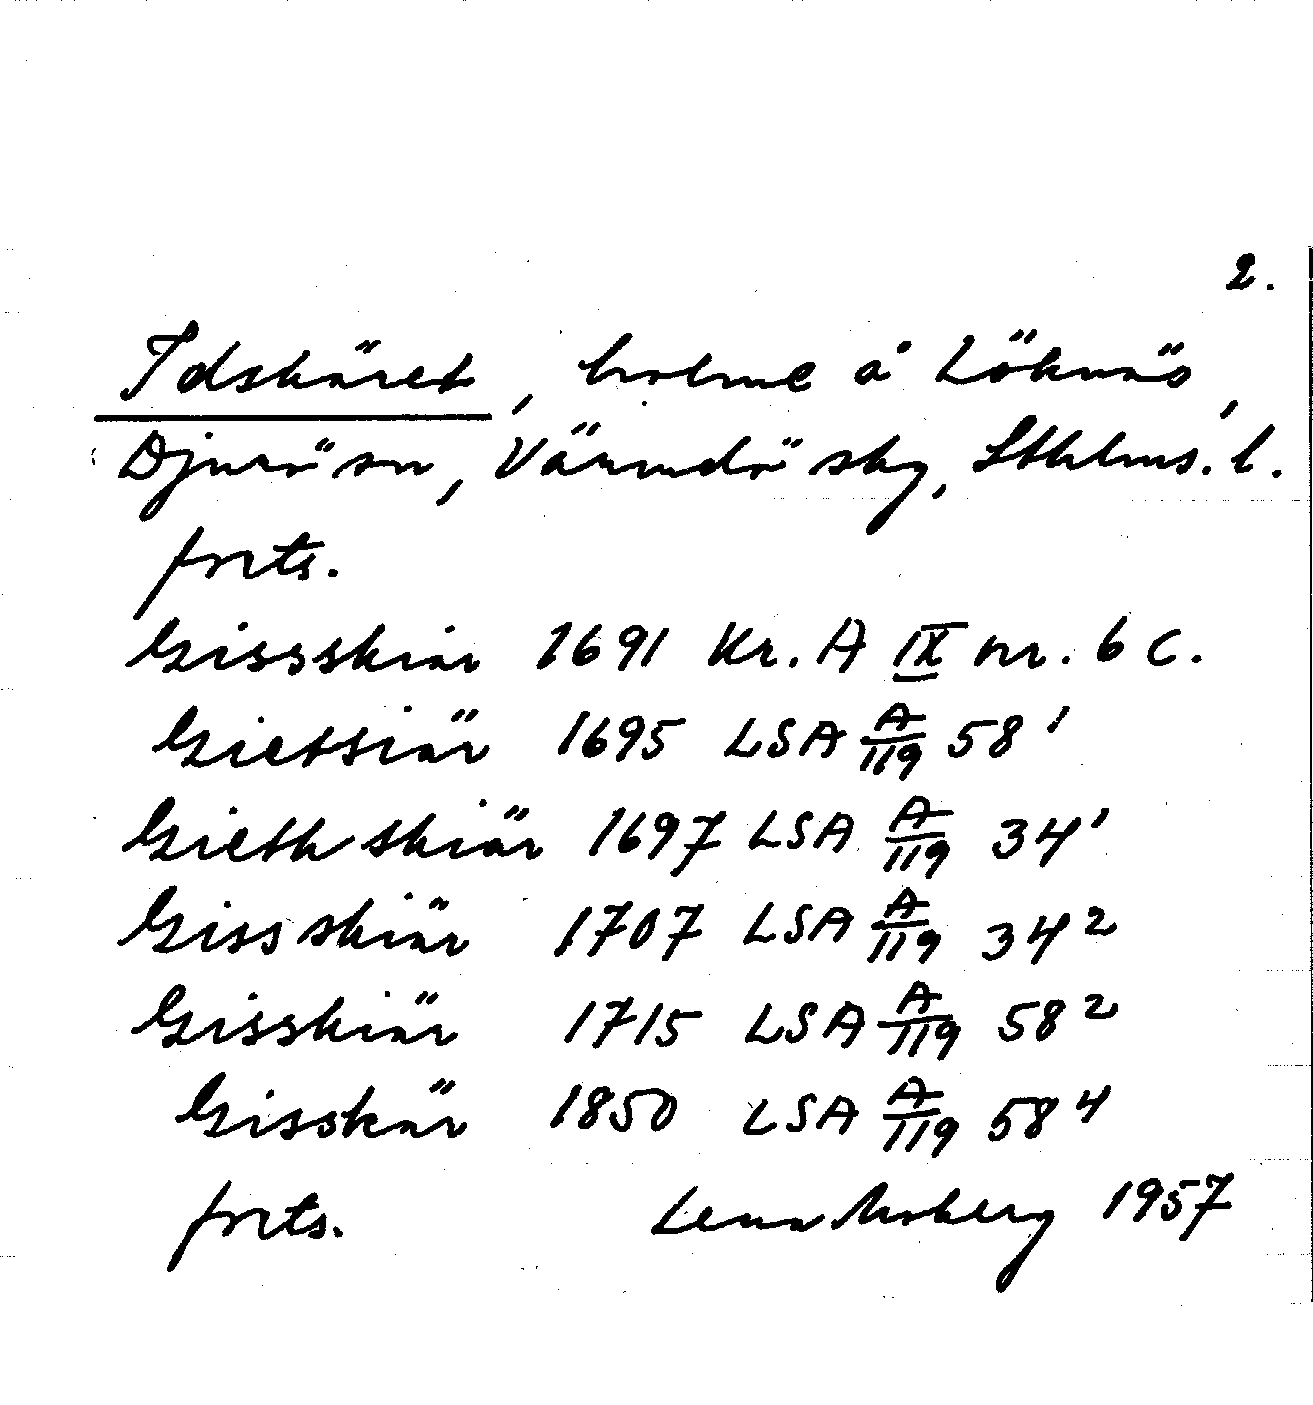 2.
Idskäret, holme å Löknäs,
Djurö sn, Värmdö sky, Sthlms. l.
forts.
Gissskiär 1691 Kr. A IX nr. 6 c.
Gietsiär 1695 LSA A/119 58¹
Gieth skiär 1697 LSA A/119 34¹
Giss skiär 1707 LSA A/119 34²
Gisskiär 1715 LSA A/119 58²
Gisskär 1850 LSA A/119 58⁴
forts. Lena Moberg 1957